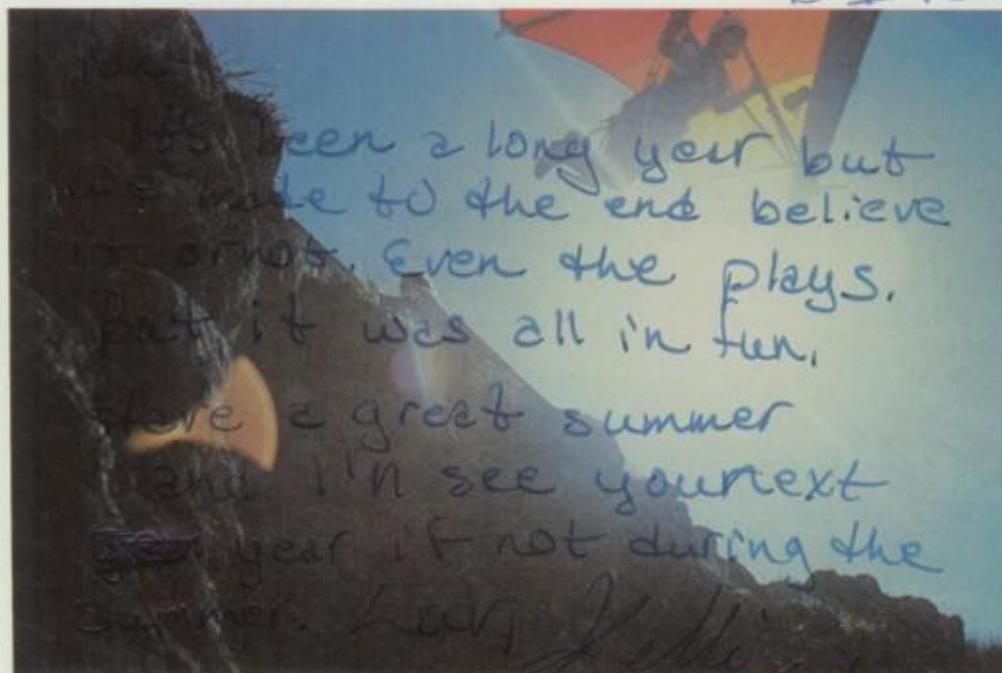 It's been a long year but
we made to the end believe
it or not. Even the plays.
But it was all in fun.
Have a great summer
and I'll see you next
year if not during the
summer. Luv,